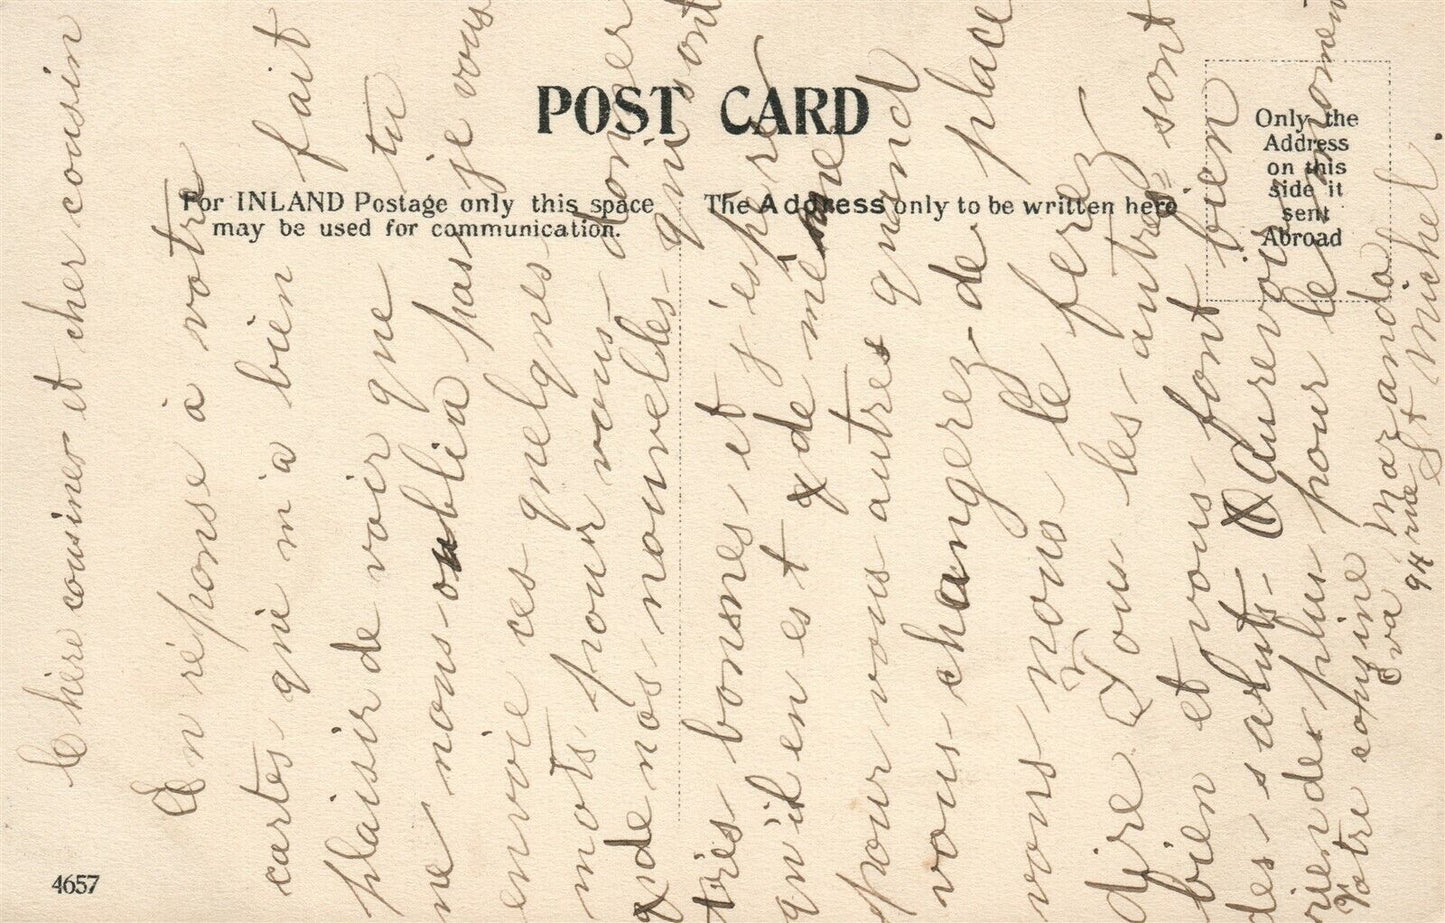 POST CARD
For INLAND Postage only this space
may be used for communication.
The Address only to be written here
Only the
Address
on this
side it
sent
Abroad
4657
Chère cousine et cher cousin
En réponse à votre
cartes qui m'a bien fait
plaisir de voir que tu
ne nous oublia pas je vous
envoie ces quelques
mots pour vous donner
de nos nouvelles qui sont
très bonnes et j'espère
qu'il en est de même
pour vous autres quand
vous changerez de place
vous nous le ferez
dire Tous les autres sont
bien et vous font bien
des saluts Aurevoir
rien de plus pour le moment
Votre cousine
Eva Mazanda
94 rue St Michel.